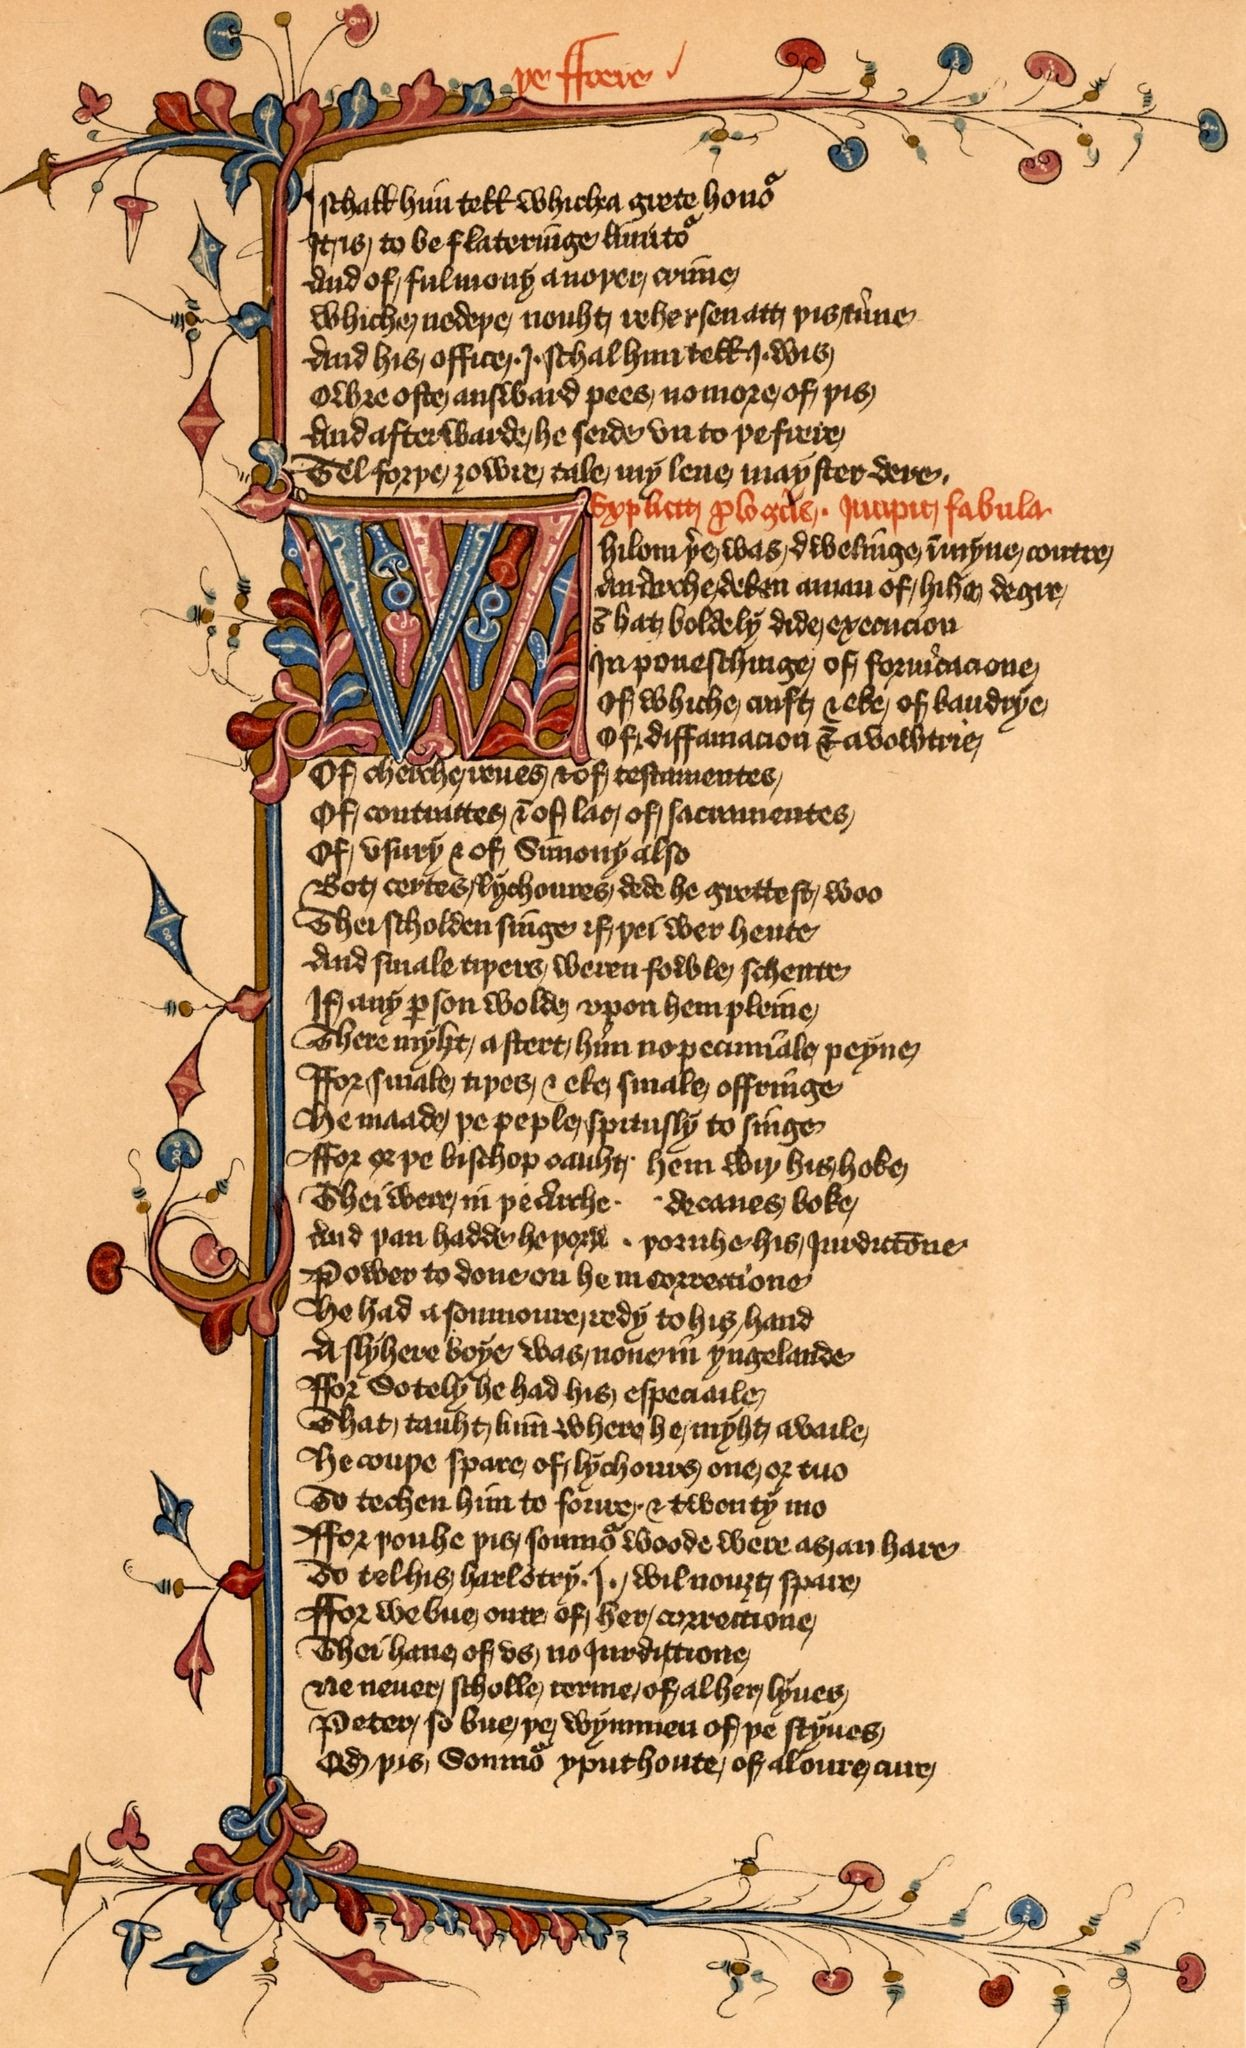 þe ffrere
I schall him tell whicha grete honor
It is to be flateringe limitor
And of ful mony anoþer crime
Whiche nedeþe nouht rehersen att þis time
And his office .I. schal him tell I wis
Owre oste answard pees no more of þis
And afterwarde he seide vn to þe frere
Tel forþe ȝowre tale my leue mayster dere.
Explicit prologus. Incipit fabula
Whilom þer was dwelinge in myne contre
An Archedeken a man of hihe degre
That boldely dide execucion
In poneschinge of fornicacione
Of whiche craft & eke of baudrye
Of diffamacion & avowtrie
Of cherche reues & of testamentes
Of contrattes & of lac of sacramentes
Of vsury & of Simony also
Bot certes lychoures dede he grettest woo
Thei scholden singe if þei wer hente
And smale tiþers weren fowle schente
If any person wolde vpon hem pleine
There myht astert him no pecuniale peyne
Ffor smale tiþes & eke smale offringe
He maade þe peple spitusly to singe
Ffor or þe bischop cauht hem wiþ his hoke
Thei were in þe Arche decanes boke
And þan hadde he þorw . þoruhe his Iurdictione
Power to done on hem correctione
He had a somnoure redy to his hand
A slyhere boye was none in yngelande
Ffor Sotely he had his especiaile
That tauht him where he myht availe
He couþe spare of lychours one or tuo
To techen him to foure & twenty mo
Ffor þouhe þis somnor woode were as an hare
To tel his harlotry .I. wil nouȝt spare
Ffor we bue oute of her correctione
Thei haue of vs no Iurdictione
Ne neuer scholle terme of al her lyues
Peter so bue þe wymmen of þe styues
Qd þis Somnor yput houte of al oure cure